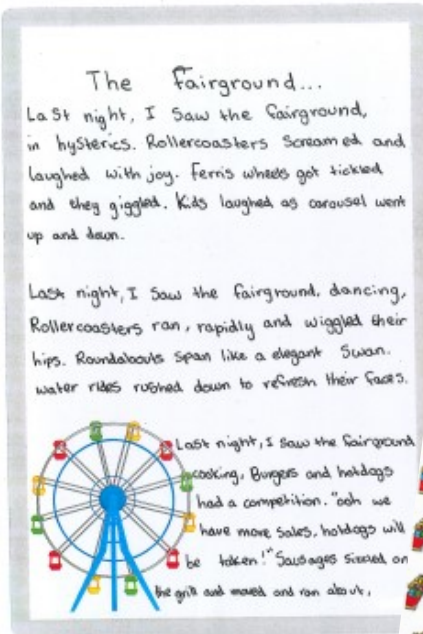 The Fairground...
Last night, I saw the fairground,
in hysterics. Rollercoasters screamed and
laughed with joy. Ferris wheels got tickled
and they giggled. Kids laughed as carousel went
up and down.
Last night, I saw the fairground, dancing,
Rollercoasters ran, rapidly and wiggled their
hips. Roundabouts span like a elegant swan.
water rides rushed down to refresh their faces.
Last night, I saw the fairground
cooking, Burgers and hotdogs
had a competition. "ooh we
have more sales, hotdogs will
be taken!" Sausages sizzed on
the grill and moved and ran about,